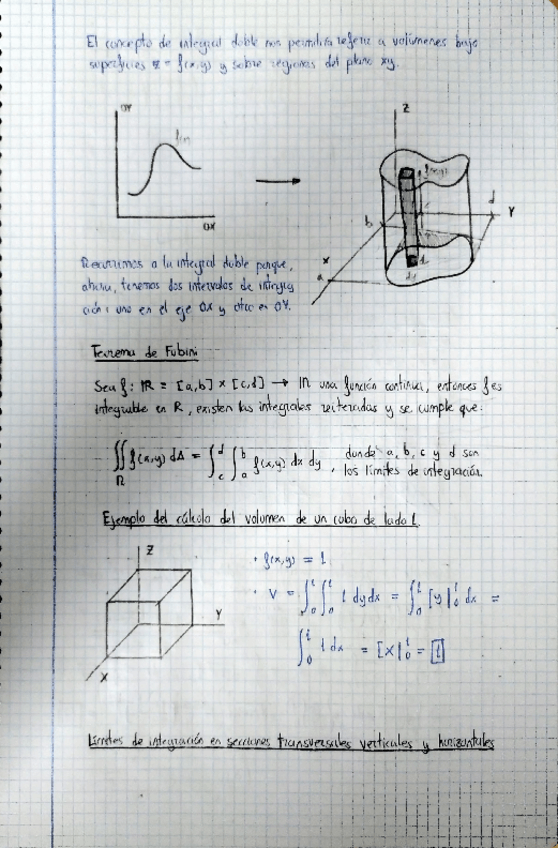 El concepto de integral doble nos permitiría referir a volúmenes bajo
superficies z = f(x,y) y sobre regiones del plano xy.
OY
OX
Z
Y
X
a
b
d
Recurrimos a la integral doble porque,
ahora, tenemos dos intervalos de integra
ción: uno en el eje OX y otro en OY.
Teorema de Fubini
Sea f: R = [a,b] × [c,d] → R una función continua, entonces f es
integrable en R, existen las integrales reiteradas y se cumple que:
∬_R f(x,y) dA = ∫_c^d ∫_a^b f(x,y) dx dy , donde a, b, c y d son
los límites de integración.
Ejemplo del cálculo del volumen de un cubo de lado 1
Z
Y
X
· f(x,y) = 1
· V = ∫_0^1 ∫_0^1 1 dydx = ∫_0^1 [y|_0^1 dx =
∫_0^1 1 dx = [x|_0^1 = 1
Límites de integración en secciones transversales verticales y horizontales